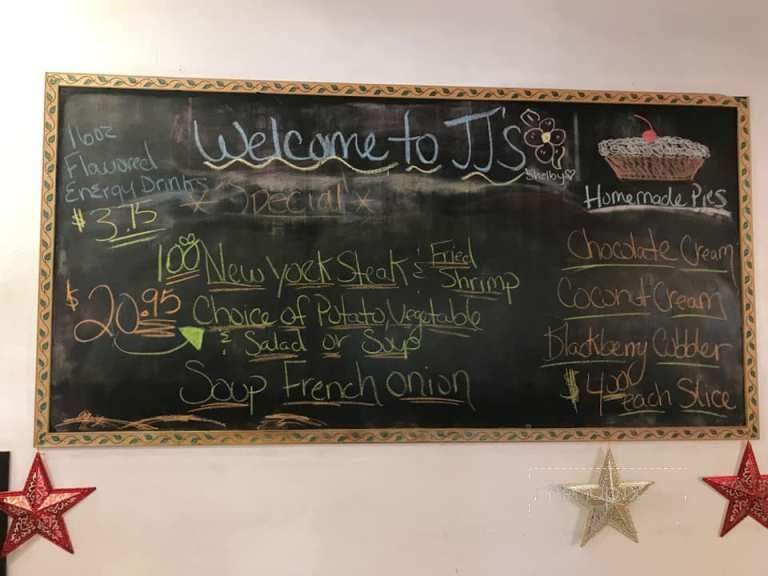 Welcome to JJ's
Shelby
16oz
Flavored
Energy Drinks
$3.15
x Special x
10oz New York Steak & Fried Shrimp
$20.95
Choice of Potato, Vegetable
& Salad or Soup
Soup French onion
Homemade Pies
Chocolate Cream
Coconut Cream
Blackberry Cobbler
$4.00 each Slice